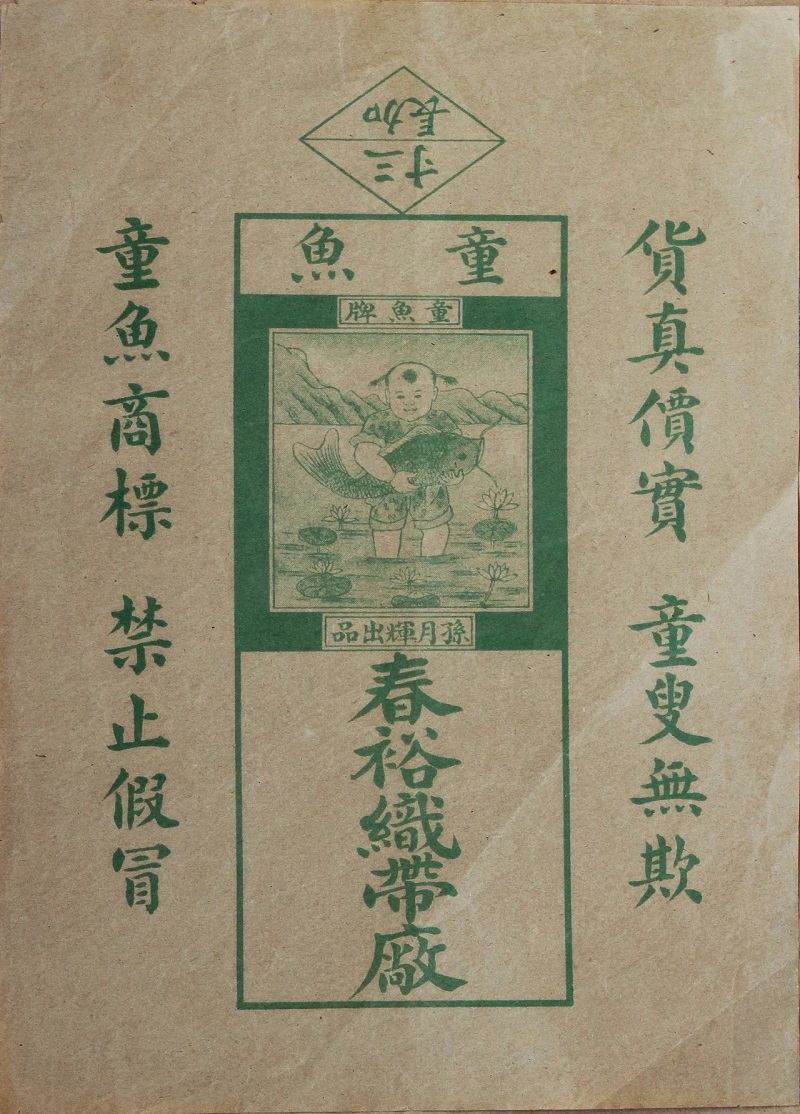 三寸
加長
貨真價實 童叟無欺
童魚
童魚牌
孫月輝出品
春裕織帶廠
童魚商標 禁止假冒